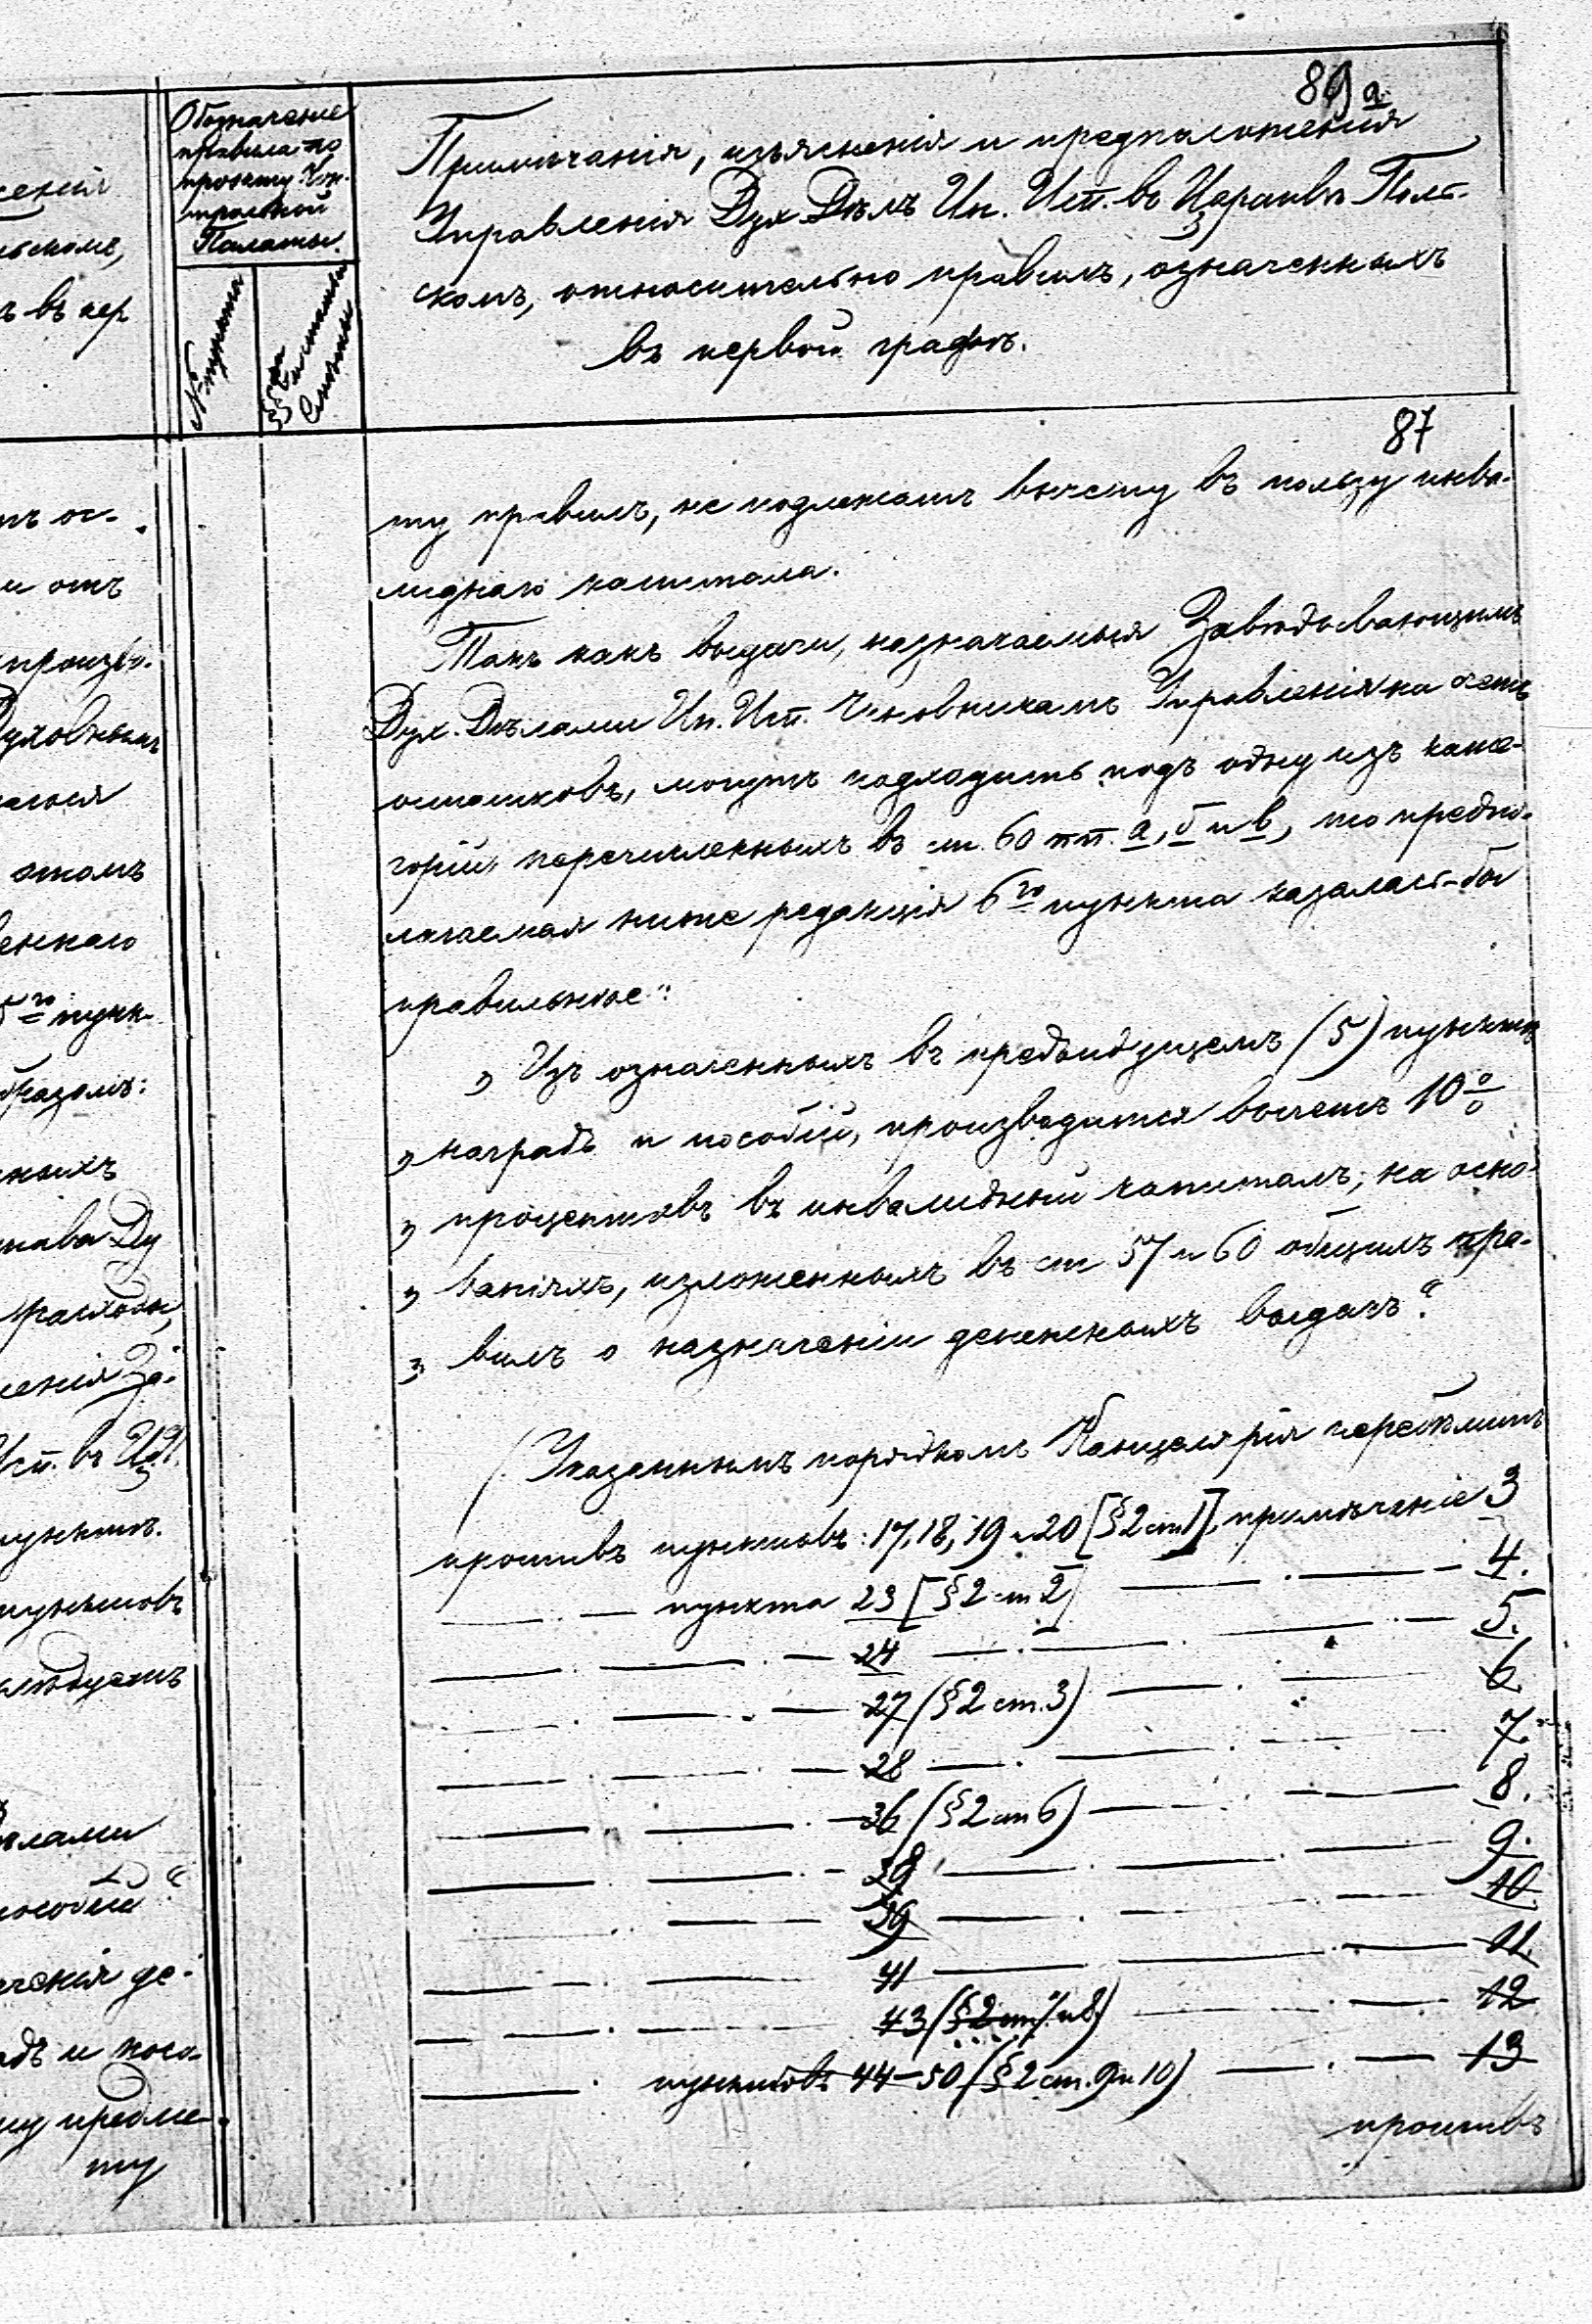 89 а
сенія
ьскомъ,
ъ въ пер
Обозначеніе
правила по
проекту Кон-
трольной
Палаты.
№ пункта
§§ и статьи
Смѣты
Примѣчанія, изъясненія и предположенія
Управленія Дух. Дѣлъ Ин. Исп. въ Царствѣ Поль-
скомъ, относительно правилъ, означенныхъ
въ первой графѣ.
87
ту правилъ, не подлежатъ вычету въ пользу инва-
лиднаго капитала.
Такъ какъ выдачи, назначаемыя Завѣдывающимъ
Дух. Дѣлами Ин. Исп. Чиновникамъ Управленія на счетъ
остатковъ, могутъ подходить подъ одну изъ кате-
горій, перечисленныхъ въ ст. 60 пп. а, б и в, то предпо-
лагаемая ниже редакція 6го пункта казалась-бы
правильнѣе:
„Изъ означенныхъ въ предыдущемъ (5) пунктѣ
„наградъ и пособій, производится вычетъ 10%
„процентовъ въ инвалидный капиталъ, на осно-
„ваніяхъ, изложенныхъ въ ст 57 и 60 общихъ пра-
„вилъ о назначеніи денежныхъ выдачъ“.
(Указаннымъ порядкомъ Канцелярія перебѣлитъ
противъ пунктовъ: 17, 18, 19 и 20 [§ 2 ст 1], примѣчаніе 3
— . — пункта 23 [§ 2 ст 2] — . — 4.
— . — . — 24 — . — . — 5.
— . — . — 27 (§ 2 ст. 3) — . — 6.
— . — . — 28 — . — . — 7.
— . — . — 36 (§ 2 ст 6) — . — 8.
— . — . — 38 — . — . — 9.
— . — . — 39 — . — . — 10.
— . — . — 41 — . — . — 11.
— . — . — 43 (§ 2 ст 7 и 8) — . — 12
— . пунктовъ 44—50 (§ 2 ст. 9 и 10) — . — 13
противъ
тъ ос-
и отъ
произв.
Духовнымъ
этомъ
веннаго
пунк-
бразомъ:
нныхъ
тава Ду
расходы,
ленія За-
Исп. въ Ц.П.
пунктъ.
пунктовъ
слѣдуетъ
ѣлами
пособій“
ческія де-
адъ и посо-
му предме-
ту